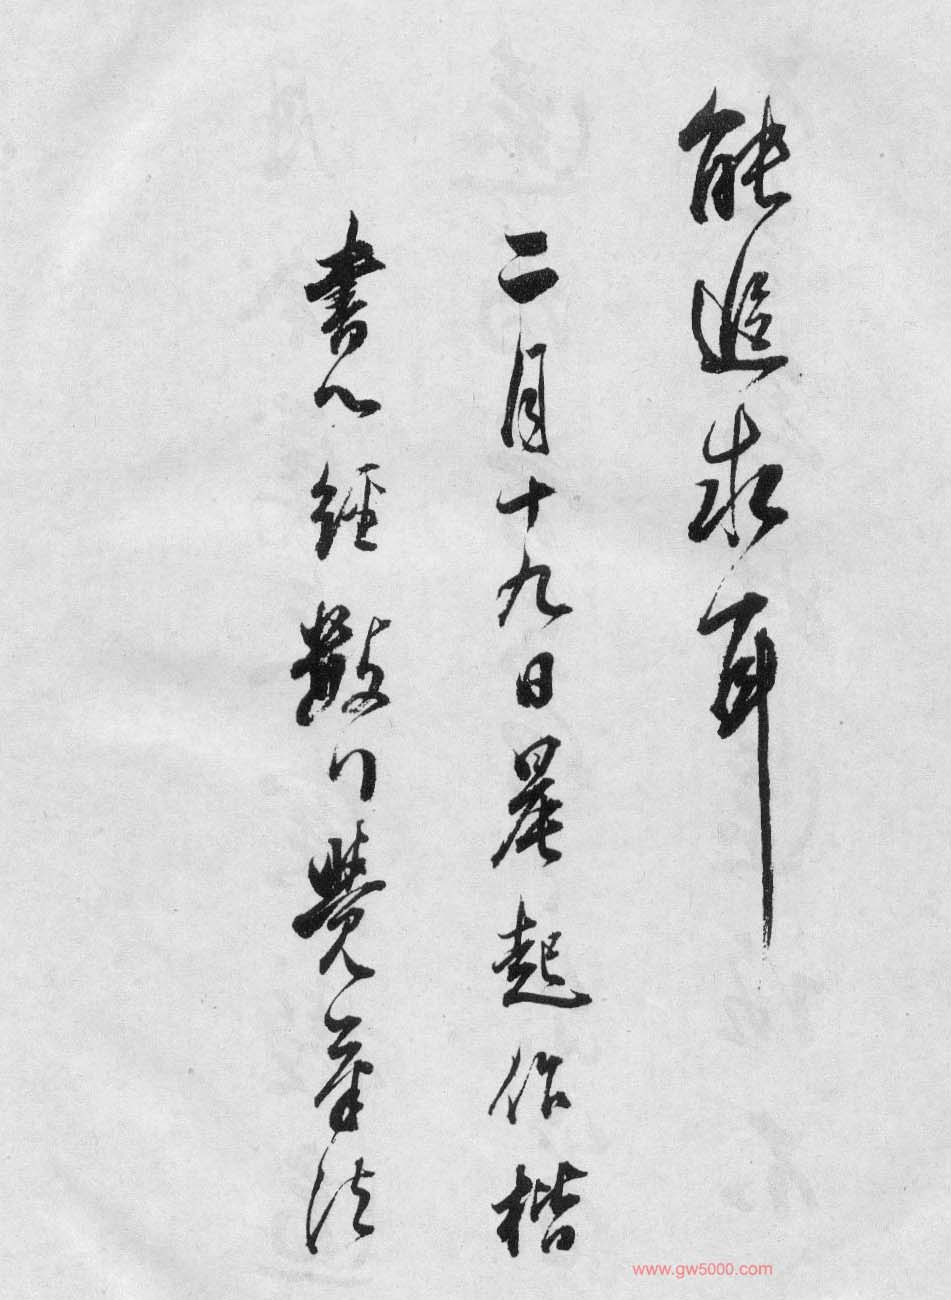 能追求耳
二月十九日晨起作楷
書心經數行覺筆法
www.gw5000.com